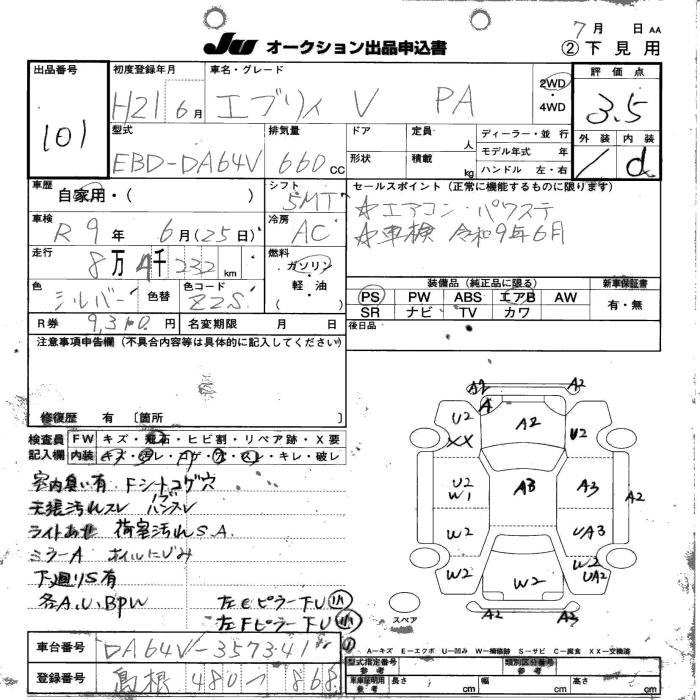 7月 日 AA
JU オークション出品申込書
② 下見用
出品番号
101
初度登録年月
H21 6月
車名・グレード
エブリィ V PA
2WD・4WD
評価点
3.5
外装 内装
d
型式
EBD-DA64V
排気量
660cc
ドア
定員 人
形状
積載 kg
ディーラー・並行
モデル年式 年
ハンドル 左・右
車歴
自家用・( )
シフト
5MT
セールスポイント (正常に機能するものに限ります)
☆エアコン・パワステ
☆車検 令和9年6月
車検
R9年 6月(25日)
冷房
AC
走行
8万4千232km
燃料
ガソリン・軽油・( )
色
シルバー
色替
色コード
Z2S
装備品 (純正品に限る)
新車保証書
PS PW ABS エアB AW
SR ナビ TV カワ
有・無
R券 9,310円
名変期限 月 日
後日品
注意事項申告欄 (不具合内容等は具体的に記入してください)
修復歴 有 [箇所 ]
検査員記入欄
FW キズ・飛石・ヒビ割・リペア跡・X要
内装 キズ・汚レ・穴・スレ・キレ・破レ
室内臭い有 Fシートコゲ穴
天張汚れスレ ハンスレ
ライトあせ 荷室汚れS.A.
ミラーA ホイルにじみ
下廻りS有
各A.U.BPW
左Cピラー下U小
左Fピラー下U小
A2 A2
U2 XX A A2 U2
U2 W1 A3 A3 A2
W2 UA3
W2 W2 W2 UA2
A2 A3
スペア
A-キズ E-エクボ U-凹み W-補修跡 S-サビ C-腐食 XX-交換済
車台番号
DA64V-357341
登録番号
島根 480 868
型式指定番号 参考
類別区分番号 参考
車庫証明用 参考
長さ cm 幅 cm 高さ cm